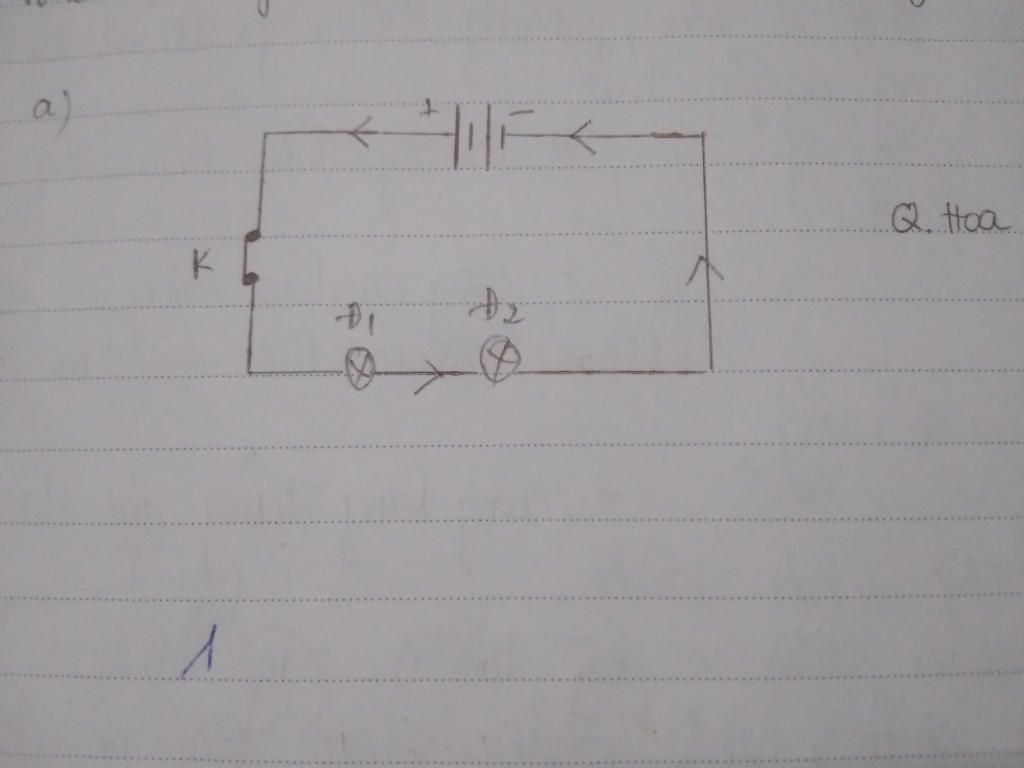 a)
+ −
Q. Hoa
K
Đ1 Đ2
1